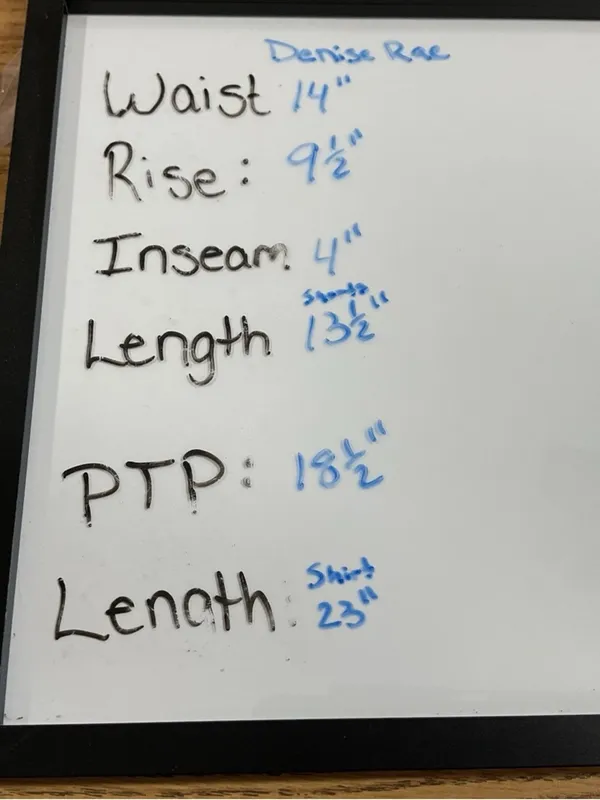 Denise Rae
Waist 14"
Rise: 9 1/2"
Inseam 4"
Shorts
Length 13 1/2"
PTP: 18 1/2"
Shirt
Length: 23"